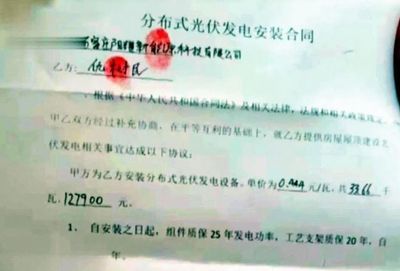 分布式光伏发电安装合同
科技有限公司
乙方:
根据《中华人民共和国合同法》及相关法律,法规和相关政策规定,
甲乙双方经过补充协商,在平等互利的基础上,就乙方提供房屋屋顶建设光
伏发电相关事宜达成以下协议:
甲方为乙方安装分布式光伏发电设备。单价为 元/瓦,共33.66 千
瓦,127900 元。
1、自安装之日起,组件质保25年发电功率,工艺支架质保20年,自
年。